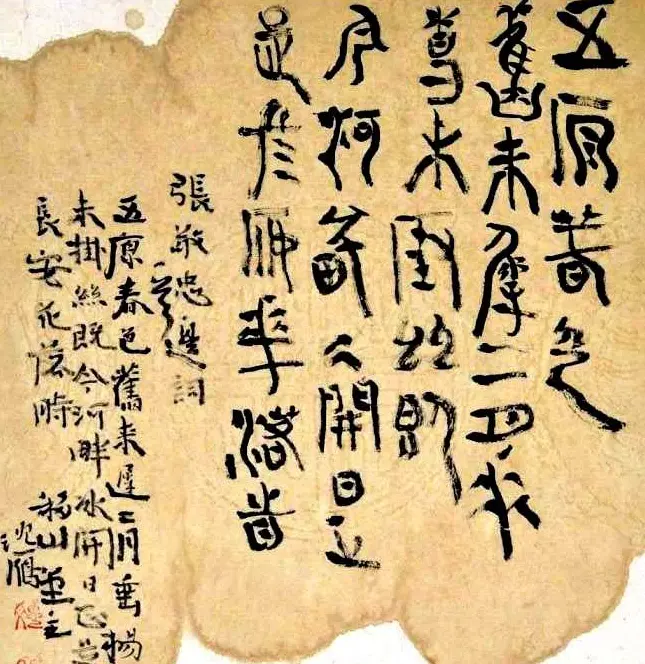 五原春色
舊來遲二月垂
楊未掛絲即
今河畔冰開日正
是長安花落時
張敬忠邊詞
五原春色舊來遲二月垂楊
未掛絲既今河畔冰開日正是
長安花落時
沈鵬